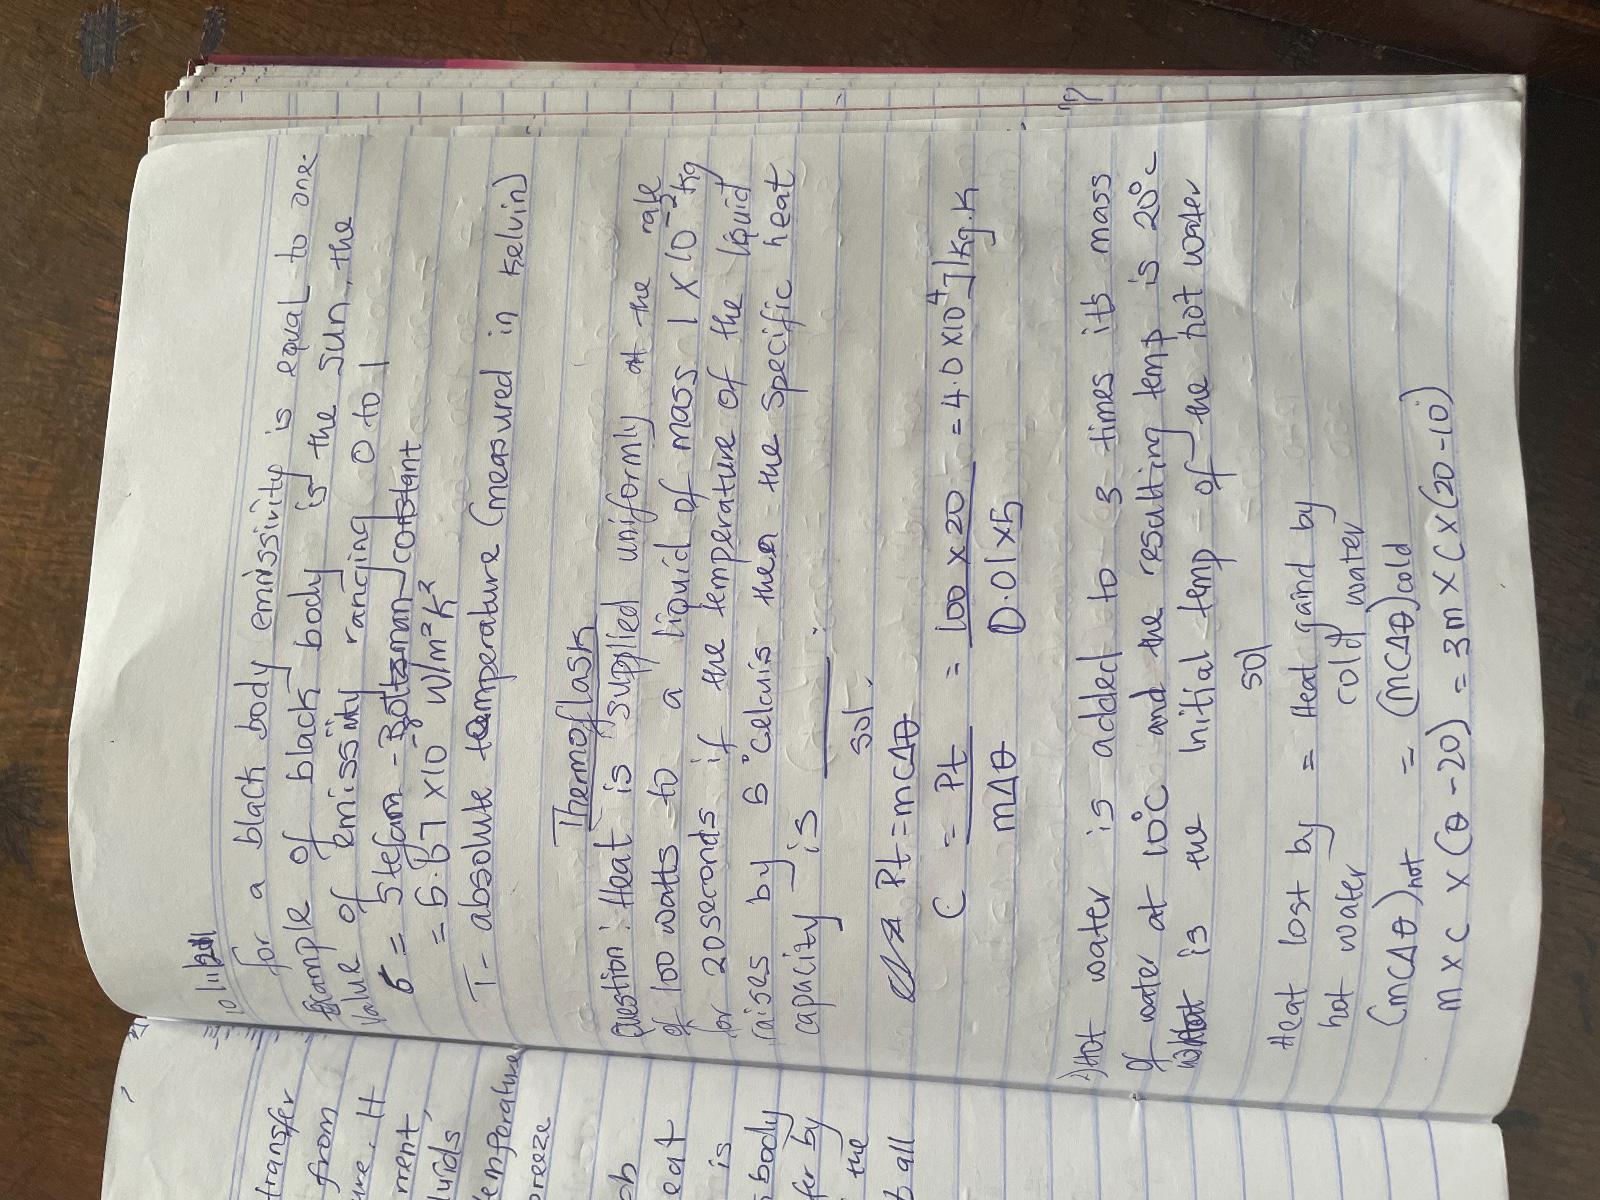 for a black body emissivity is equal to one.
Example of black body is the sun, the
value of emissivity ranging 0 to 1
σ = Stefam - Boltzman constant
= 5.67 x10⁻⁸ W/m²k²
T - absolute temperature (measured in kelvin)
Thermoflask
Question: Heat is supplied uniformly at the rate
of 100 watts to a liquid of mass 1 x 10⁻² kg
for 20 seconds if the temperature of the liquid
raises by 5° celcuis then the specific heat
capacity is ______.
sol.
Pt = mcΔθ
C = Pt = 100 x 20 = 4.0 x10⁴ J/kg.k
mΔθ 0.01 x 5
Hot water is added to 3 times its mass
of water at 10°C and the resulting temp is 20°c
What is the initial temp of the hot water
sol
Heat lost by = Heat gaind by
hot water cold water
(mcΔθ)hot = (mcΔθ)cold
m x c x (θ - 20) = 3m x c x (20 - 10)
transfer
from
ure. It
ment,
luids
temperature
breeze
ob
eat
is
body
fer by
the
all